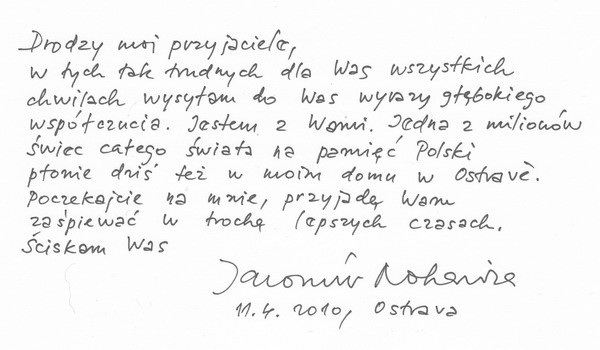 Drodzy moi przyjaciele,
w tych tak trudnych dla Was wszystkich
chwilach wysyłam do Was wyrazy głębokiego
współczucia. Jestem z Wami. Jedna z milionów
świec całego świata na pamięć Polski
płonie dziś też w moim domu w Ostravě.
Poczekajcie na mnie, przyjadę Wam
zaśpiewać w trochę lepszych czasach.
Ściskam Was
Jaromír Nohavica
11.4. 2010, Ostrava